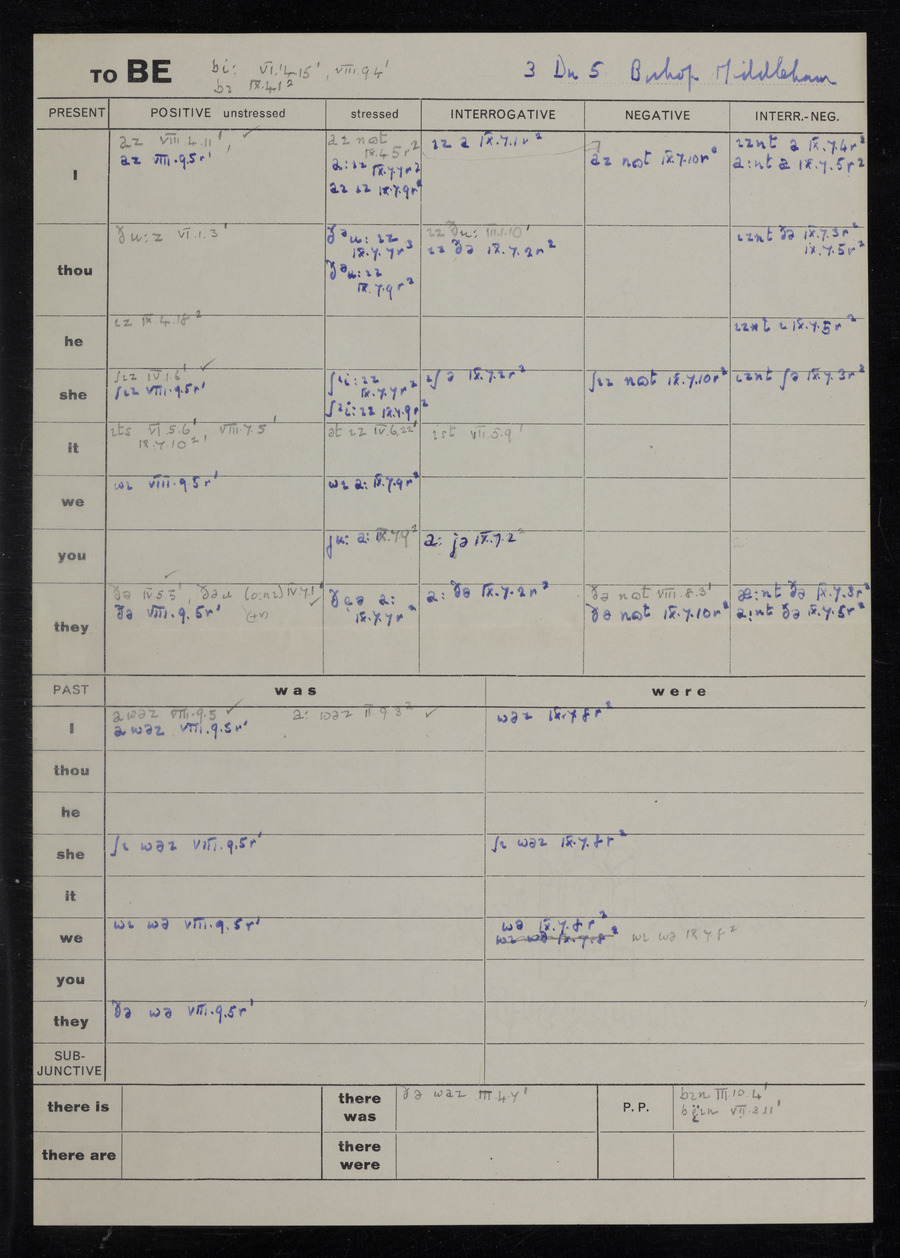 TO BE bi: VI.14.15¹, VIII.9.4¹ 3 Du 5 Bishop Middleham
bɪ IX.4.1²
PRESENT POSITIVE unstressed stressed INTERROGATIVE NEGATIVE INTERR.-NEG.
I
az VIII.4.11¹, ✓
az VIII.9.5r¹
az nɒt
IX.4.5r²
a: ɪz IX.7.7r²
az ɪz IX.7.9r²
ɪz a IX.7.1r²
az nɒt IX.7.10r²
ɪznt a IX.7.4r²
a:nt a IX.7.5r²
thou
ðu:z VI.1.3¹
ðəu: ɪz
IX.7.7r³
ðəu: ɪz
IX.7.9r²
ɪz ðu: III.1.10¹
ɪz ðə IX.7.2r²
ɪznt ðə IX.7.3r²
IX.7.5r²
he
ɪz IX.4.18²
ɪznt ɪ IX.7.5r²
she
ʃɪz IV.1.6¹ ✓
ʃɪz VIII.9.5r¹
ʃɪi: ɪz
IX.7.7r²
ʃɪi: ɪz IX.7.9r²
ɪʃ ə IX.7.2r²
ʃɪz nɒt IX.7.10r²
ɪznt ʃə IX.7.3r²
it
ɪts VI.5.6¹, VIII.7.5¹
IX.7.10²
ət ɪz IV.6.22¹
ɪst VII.5.9¹
we
wɪ VIII.9.5r¹
wɪ a: IX.7.9r²
you
ju: a: IX.7.9²
a: jə IX.7.2²
they
ðə IV.5.5¹, ðəu (o:nɪ) IV.7.1¹ ✓
ðə VIII.9.5r¹ (+v)
ðeə a:
IX.7.7r²
a: ðə IX.7.2r²
ðə nɒt VIII.8.3¹
ðə nɒt IX.7.10r²
æ:nt ðə IX.7.3r²
a:nt ðə IX.7.5r²
PAST was were
I
a wəz VIII.9.5 ✓ a: wəz II.9.3² ✓
a wəz VIII.9.5r¹
wəz IX.7.8r²
thou
he
she
ʃɪ wəz VIII.9.5r¹
ʃɪ wəz IX.7.8r²
it
we
wɪ wə VIII.9.5r¹
wə IX.7.8r²
wɪ wə IX.7.8² wɪ wə IX.7.8²
you
they
ðə wə VIII.9.5r¹
SUB-
JUNCTIVE
there is
there
was
ðə waz III.4.7¹
P.P.
bɪn III.10.4¹
VII.2.11¹
there are
there
were